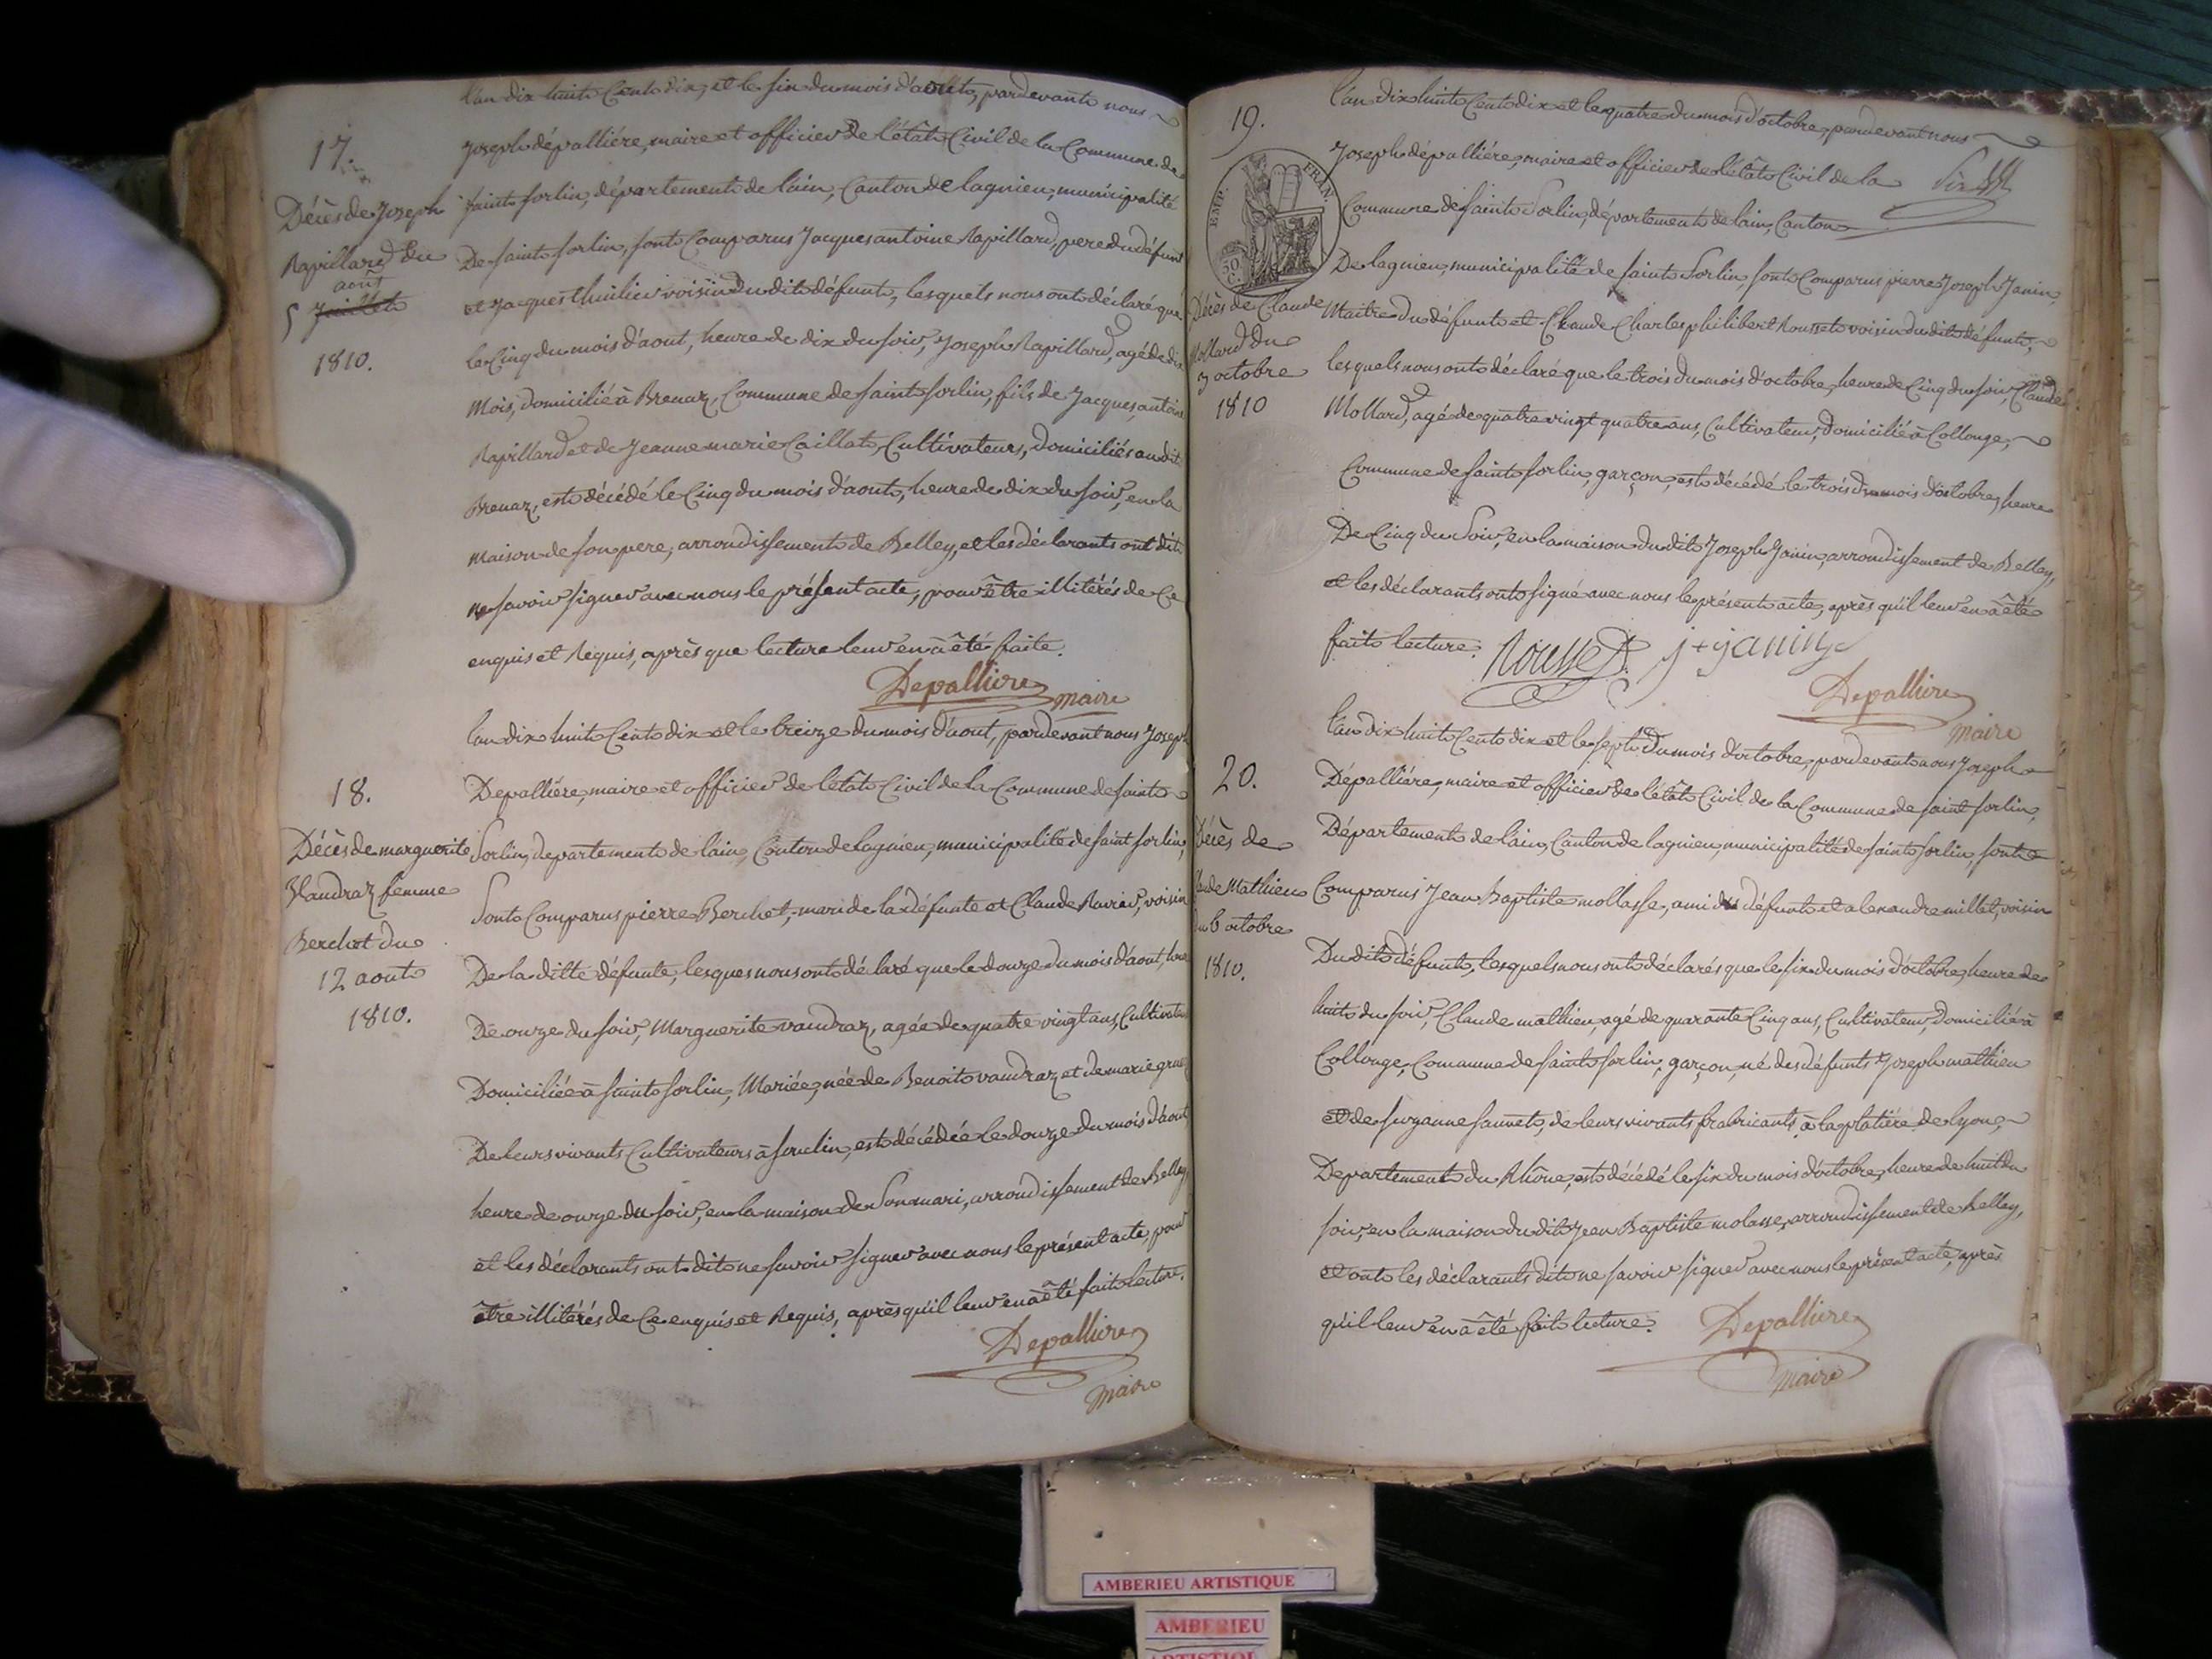 l'an dix huit Cent dix, et le six du mois d'aoutt, pardevant nous
17.
Joseph dépalliére, maire et officier de l'êtât Civil de la Commune de
Décès de Joseph
saint sorlin, département de l'ain, Canton de lagnieu, municipalité
Rapillard du
De saint sorlin, sont Comparus Jacques antoine Rapillard, pere du défunt
août
5 Juillet
et Jacques thuilier voisin du dit défunt, lesquels nous ont déclaré que
1810.
le Cinq du mois d'aout, heure de dix du soir, Joseph Rapillard, agé de dix
Mois, domicilié à Brenaz, Commune de saint sorlin, fils de Jacques, antoine
Rapillard et de Jeanne marie Caillat, Cultivateurs, domiciliés au dit
Brenaz, est décédé le Cinq du mois d'aout, heure de dix du soir, en la
maison de son pere, arrondissement de Belley, et les déclarants ont dit
ne savoir signer avec nous le présent acte, pour être illitérés de Ce
enquis et Requis, après que lecture leur en à été faite.
Depalliere maire
l'an dix huit Cent dix et le treize du mois d'aout, pardevant nous Joseph
18.
Depalliére, maire et officier de l'êtât Civil de la Commune de saint
Décès de marguerite
Sorlin, departement de l'ain, Canton de lagnieu, municipalité de saint sorlin,
Vaudraz femme
Sont Comparus pierre Berchet, mari de la défunte et Claude Ravier, voisin
Berchet du
12 aout
De la ditte défunte, lesques nous ont déclaré que le douze du mois d'aout, heure
1810.
De onze du soir, Marguerite vaudraz, agée de quatre vingt ans, Cultivateur
Domiciliée à saint sorlin, Mariée, née de Benoit vaudraz et de marie
De leurs vivants Cultivateurs à souclin, est décédée le douze du mois d'aout
heure de onze du soir, en la maison de Son mari, arrondissement de Belley
et les déclarants ont dit ne savoir signer avec nous le présent acte, pour
être illitérés de Ce enquis et Requis, après qu'il leur en à été fait lecture.
Depalliere
maire
19.
l'an dix huit Cent dix et le quatre du mois d'octobre, pardevant nous
Joseph dépalliére, maire et officier de l'êtât Civil de la
EMP. FRAN.
50 C.
Commune de saint Sorlin, département de l'ain, Canton
De lagnieu, municipalité de saint Sorlin, sont Comparus pierre Joseph Janin,
Décès de Claude
Maitre du défunt et Claude Charles philibert Rousset voisin du dit défunt,
Mollard du
3 octobre
lesquels nous ont déclaré que le trois du mois d'octobre, heure de Cinq du soir, Claude
1810
Mollard, agé de quatre vingt quatre ans, Cultivateur, Domicilié à Collonge,
Commune de saint sorlin, garçon, est décédé le trois du mois d'octobre, heure
De Cinq du Soir, en la maison du dit Joseph Janin, arrondissement de Belley,
et les déclarants ont signé avec nous le présent acte, après qu'il leur en à été
fait lecture. Rousset j + janin
Depalliere
maire
l'an dix huit Cent dix et le sept du mois d'octobre, pardevant nous Joseph
20.
Dépalliére, maire et officier de l'êtât Civil de la Commune de saint sorlin,
Décès de
Département de l'ain, Canton de lagnieu, municipalité de saint sorlin, sont
Claude Mathieu
Comparus Jean Baptiste mollasse, ami du défunt et alexandre millet, voisin
du 6 octobre
Du dit défunt, lesquels nous ont déclarés que le six du mois d'octobre, heure de
1810.
huit du soir, Claude mathieu, agé de quarante Cinq ans, Cultivateur, Domicilié à
Collonge, Commune de saint sorlin, garçon, né des défunts Joseph mathieu
et de suzanne sauvet, de leurs vivants frabricants à la platière de lyon,
Departement du Rhône, est décédé le six du mois d'octobre, heure de huit du
soir, en la maison du dit Jean Baptiste molasse, arrondissement de Belley,
et ont les déclarants dit ne savoir signer avec nous le présent acte, après
qu'il leur en à été fait lecture. Depalliere
maire
AMBERIEU ARTISTIQUE
AMBERIEU
ARTISTIQUE